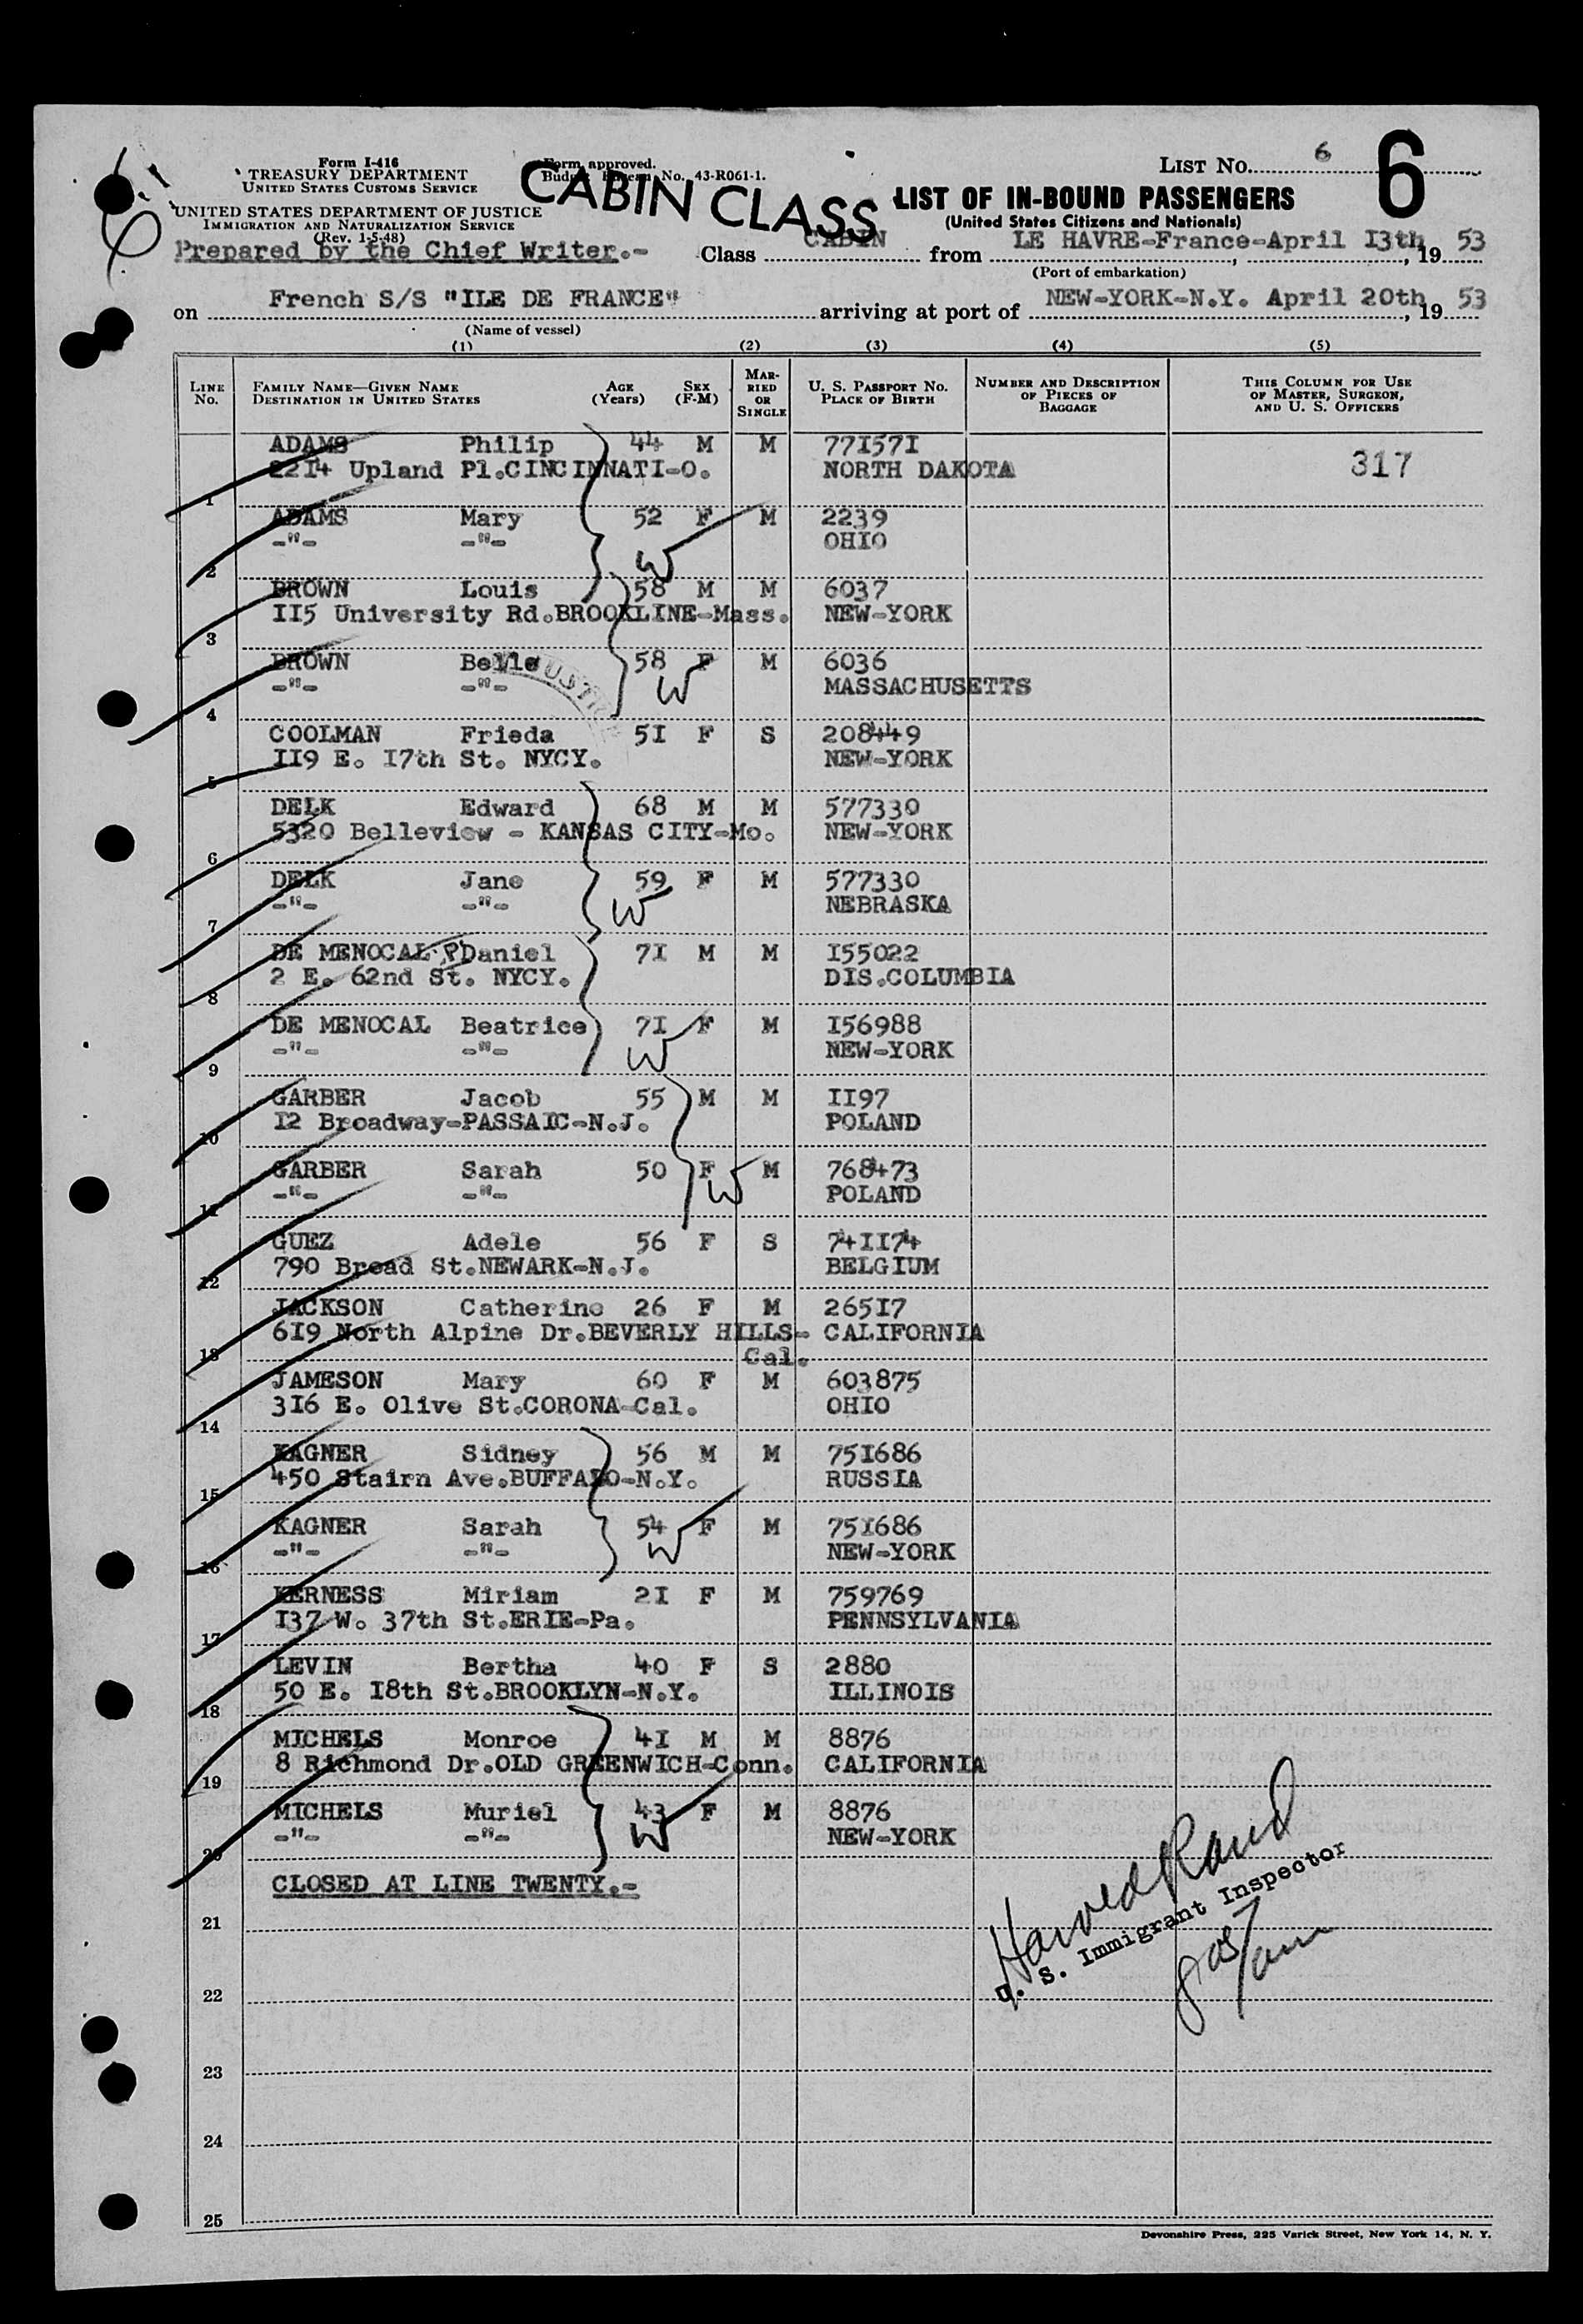 Form I-416
TREASURY DEPARTMENT
UNITED STATES CUSTOMS SERVICE
UNITED STATES DEPARTMENT OF JUSTICE
IMMIGRATION AND NATURALIZATION SERVICE
(Rev. 1-5-48)
Form approved.
Budget Bureau No. 43-R061-1.
CABIN CLASS
LIST No. 6
6
LIST OF IN-BOUND PASSENGERS
(United States Citizens and Nationals)
Prepared by the Chief Writer.-
Class CABIN from LE HAVRE-France-April I3th, 19 53
(Port of embarkation)
on French S/S "ILE DE FRANCE" arriving at port of NEW-YORK-N.Y. April 20th, 19 53
(Name of vessel)
(1) (2) (3) (4) (5)
LINE No. FAMILY NAME—GIVEN NAME DESTINATION IN UNITED STATES AGE (Years) SEX (F-M) MARRIED OR SINGLE U. S. PASSPORT NO. PLACE OF BIRTH NUMBER AND DESCRIPTION OF PIECES OF BAGGAGE THIS COLUMN FOR USE OF MASTER, SURGEON, AND U. S. OFFICERS
ADAMS Philip 44 M M 77I57I
22I4 Upland Pl.CINCINNATI-O. NORTH DAKOTA 317
1
ADAMS Mary 52 F M 2239
-"- -"- W OHIO
2
BROWN Louis 58 M M 6037
II5 University Rd.BROOKLINE-Mass. NEW-YORK
3
BROWN Belle 58 F M 6036
-"- -"- W MASSACHUSETTS
4
COOLMAN Frieda 5I F S 208449
II9 E. I7th St. NYCY. NEW-YORK
5
DELK Edward 68 M M 577330
5320 Belleview - KANSAS CITY-Mo. NEW-YORK
6
DELK Jane 59 F M 577330
-"- -"- W NEBRASKA
7
DE MENOCAL P Daniel 7I M M I55022
2 E. 62nd St. NYCY. DIS.COLUMBIA
8
DE MENOCAL Beatrice 7I F M I56988
-"- -"- W NEW-YORK
9
GARBER Jacob 55 M M II97
I2 Broadway-PASSAIC-N.J. POLAND
10
GARBER Sarah 50 F M 768473
-"- -"- W POLAND
11
GUEZ Adele 56 F S 74II74
790 Broad St.NEWARK-N.J. BELGIUM
12
JACKSON Catherine 26 F M 265I7
6I9 North Alpine Dr.BEVERLY HILLS- CALIFORNIA
13 Cal.
JAMESON Mary 60 F M 603875
3I6 E. Olive St.CORONA-Cal. OHIO
14
KAGNER Sidney 56 M M 75I686
450 Stairn Ave.BUFFALO-N.Y. RUSSIA
15
KAGNER Sarah 54 F M 75I686
-"- -"- W NEW-YORK
16
KERNESS Miriam 2I F M 759769
I37 W. 37th St.ERIE-Pa. PENNSYLVANIA
17
LEVIN Bertha 40 F S 2880
50 E. I8th St.BROOKLYN-N.Y. ILLINOIS
18
MICHELS Monroe 4I M M 8876
8 Richmond Dr.OLD GREENWICH-Conn. CALIFORNIA
19
MICHELS Muriel 43 F M 8876
-"- -"- W NEW-YORK
20
CLOSED AT LINE TWENTY.-
Harold Rand
U. S. Immigrant Inspector
21
22
23
24
25
Devonshire Press, 225 Varick Street, New York 14, N. Y.